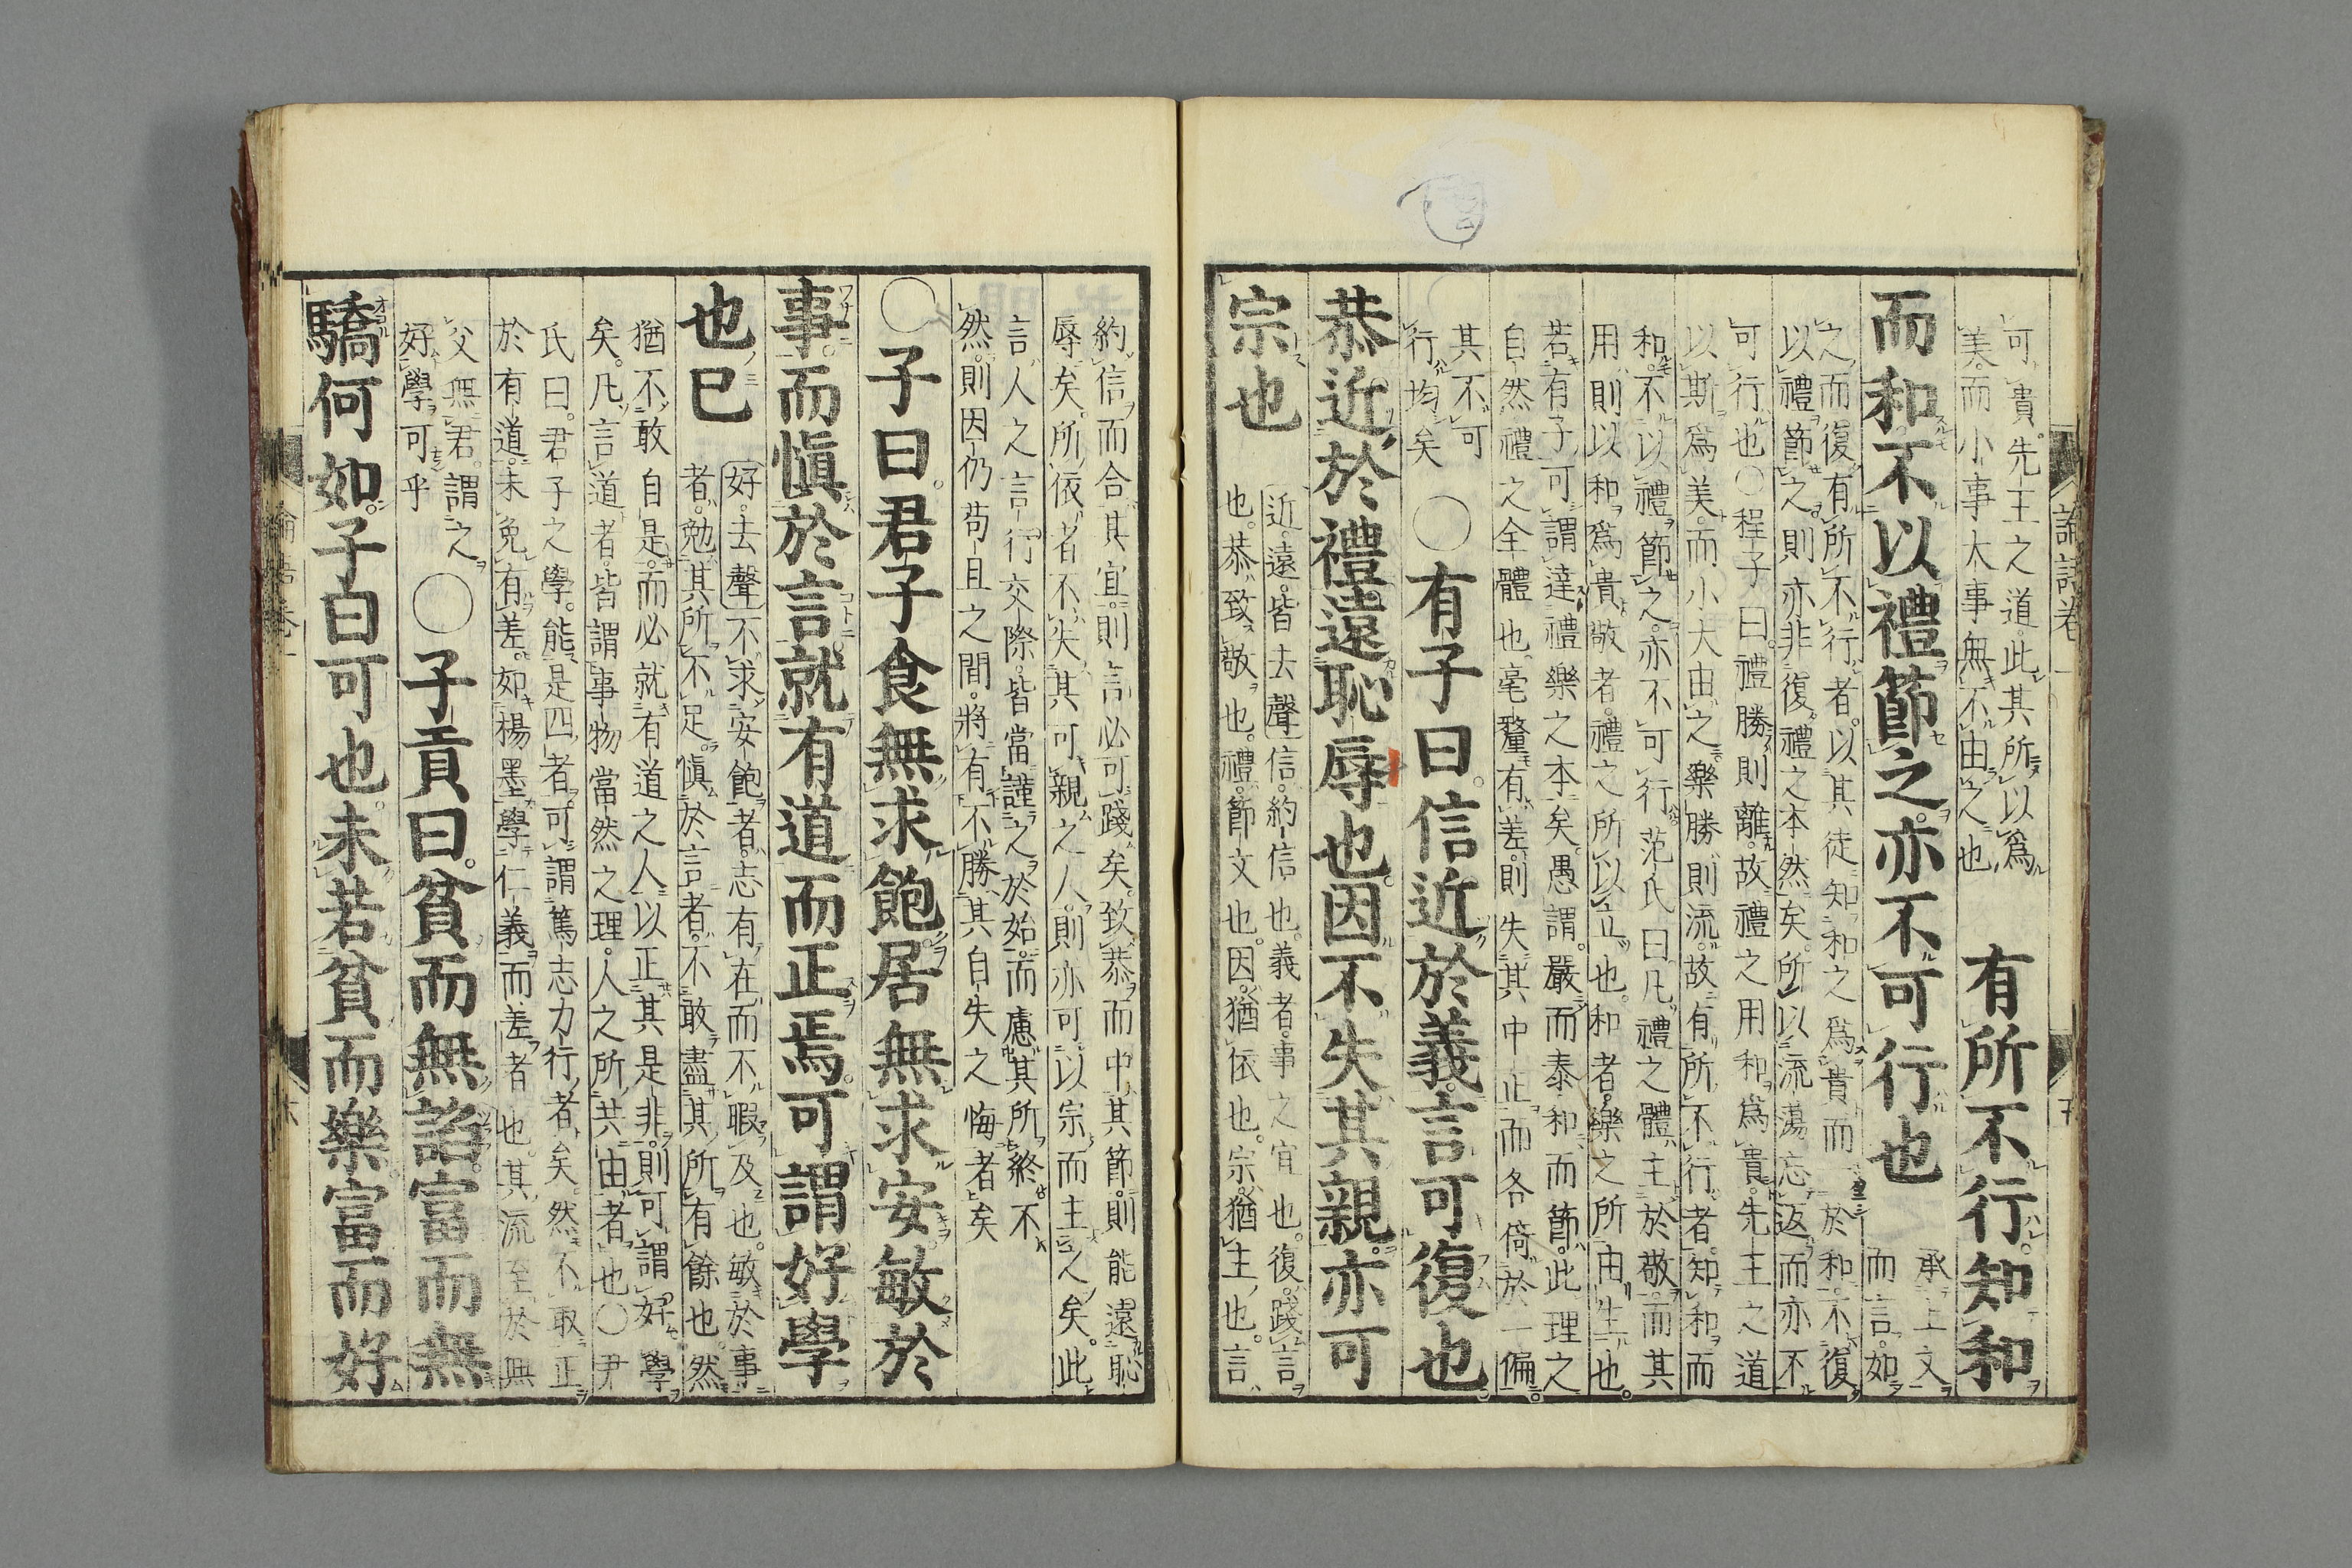 論語卷一 五
可貴先王之道此其所以爲
美而小事大事無不由之也
有所不行知和
而和不以禮節之亦不可行也
承上文
而言如
之而復有所不行者以其徒知和之爲貴而一於和不復
以禮節之則亦非復禮之本然矣所以流蕩忘返而亦不
可行也○程子曰禮勝則離故禮之用和爲貴先王之道
以斯爲美而小大由之樂勝則流故有所不行者知和而
和不以禮節之亦不可行范氏曰凡禮之體主於敬而其
用則以和爲貴敬者禮之所以立也和者樂之所由生也
若有子可謂達禮樂之本矣愚謂嚴而泰和而節此理之
自然禮之全體也毫釐有差則失其中正而各倚於一偏
其不可
行均矣
○有子曰信近於義言可復也
恭近於禮遠恥辱也因不失其親亦可
宗也
近遠皆去聲信約信也義者事之宜也復踐言
也恭致敬也禮節文也因猶依也宗猶主也言
約信而合其宜則言必可踐矣致恭而中其節則能遠恥
辱矣所依者不失其可親之人則亦可以宗而主之矣此
言人之言行交際皆當謹之於始而慮其所終不
然則因仍苟且之間將有不勝其自失之悔者矣
○子曰君子食無求飽居無求安敏於
事而愼於言就有道而正焉可謂好學
也已
好去聲不求安飽者志有在而不暇及也敏於事
者勉其所不足愼於言者不敢盡其所有餘也然
猶不敢自是而必就有道之人以正其是非則可謂好學
矣凡言道者皆謂事物當然之理人之所共由者也○尹
氏曰君子之學能是四者可謂篤志力行者矣然不取正
於有道未免有差如楊墨學仁義而差者也其流至於無
父無君謂之
好學可乎
○子貢曰貧而無諂富而無
驕何如子曰可也未若貧而樂富而好
論語卷一 六